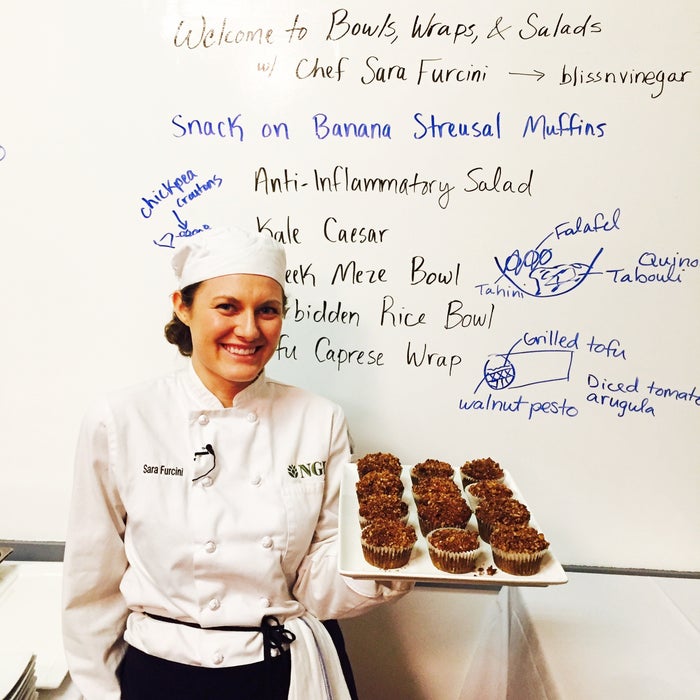 Welcome to Bowls, Wraps, & Salads
w/ Chef Sara Furcini → blissnvinegar
Snack on Banana Streusal Muffins
chickpea
croutons
Anti-Inflammatory Salad
Kale Caesar
eek Meze Bowl
rbidden Rice Bowl
fu Caprese Wrap
Falafel
Quino
Tabouli
Tahini
Grilled tofu
Diced tomato
arugula
walnut pesto
Sara Furcini
NGI